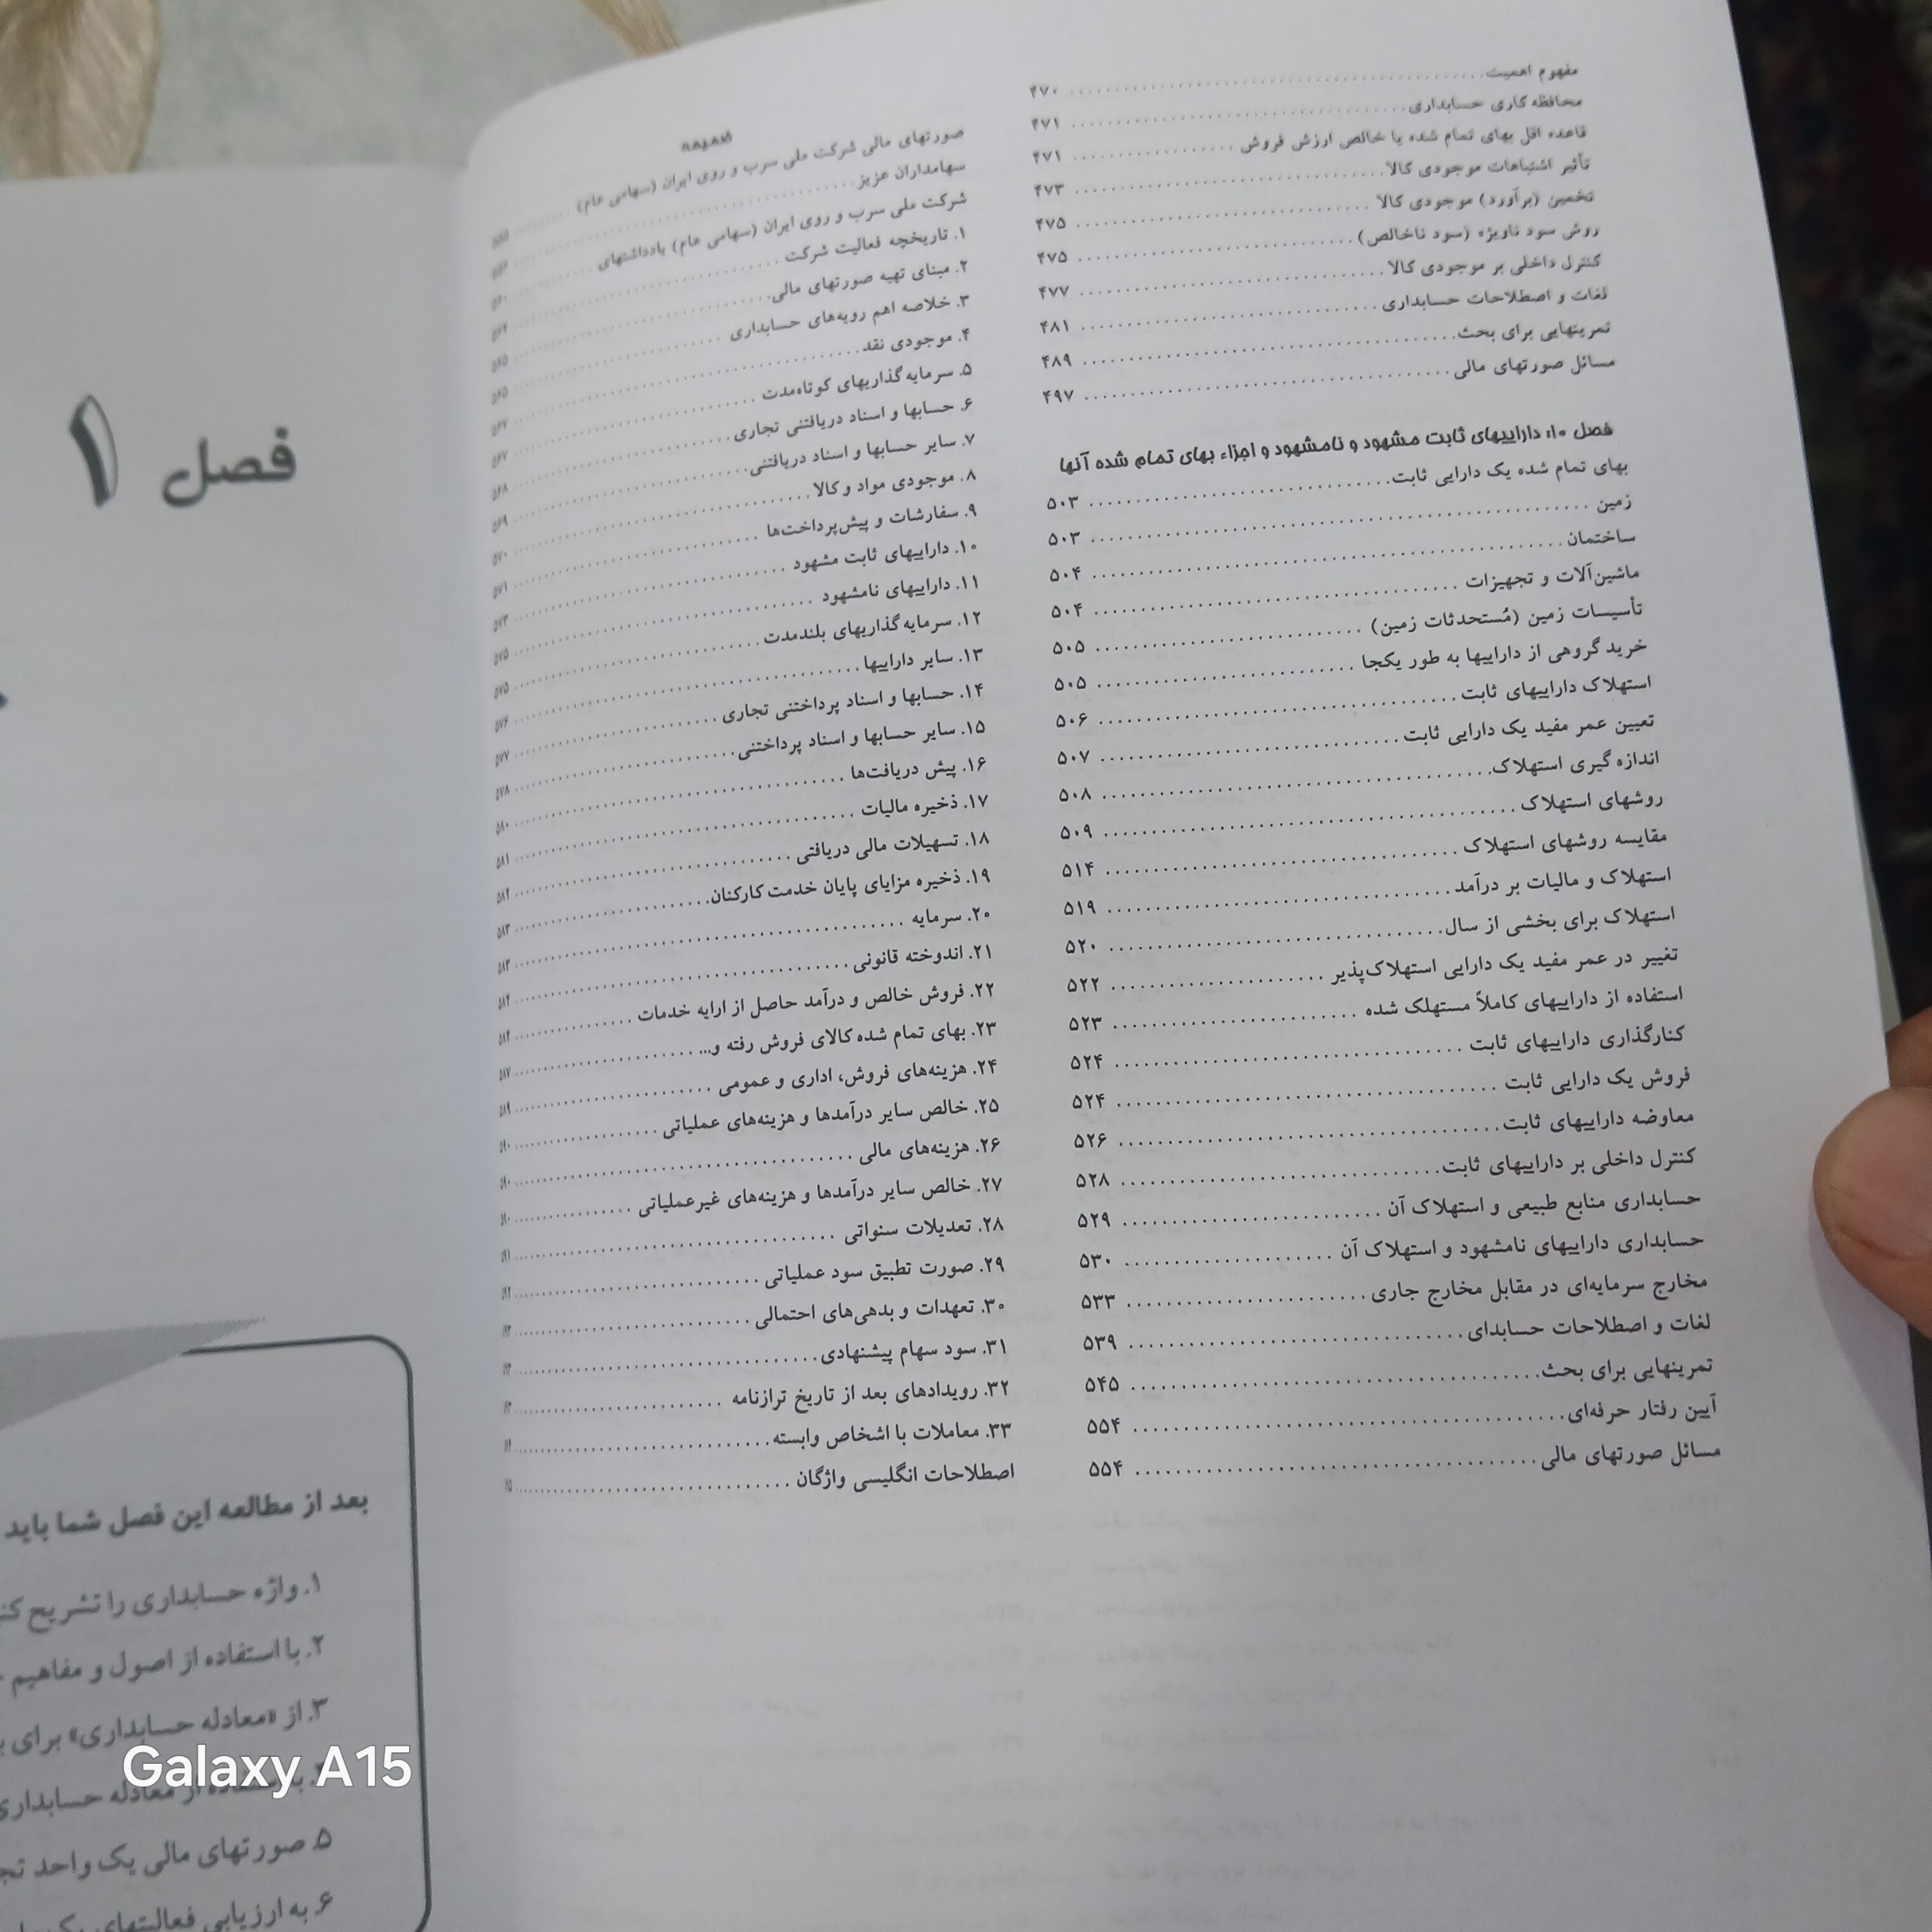 مفهوم اهمیت ........ ۴۷۰
محافظه کاری حسابداری ........ ۴۷۱
قاعده اقل بهای تمام شده یا خالص ارزش فروش ........ ۴۷۱
تأثیر اشتباهات موجودی کالا ........ ۴۷۳
تخمین (برآورد) موجودی کالا ........ ۴۷۵
روش سود ناویژه (سود ناخالص) ........ ۴۷۵
کنترل داخلی بر موجودی کالا ........ ۴۷۷
لغات و اصطلاحات حسابداری ........ ۴۸۱
تمرینهایی برای بحث ........ ۴۸۹
مسائل صورتهای مالی ........ ۴۹۷
فصل ۱۰: داراییهای ثابت مشهود و نامشهود و اجزاء بهای تمام شده آنها
بهای تمام شده یک دارایی ثابت ........ ۵۰۳
زمین ........ ۵۰۳
ساختمان ........ ۵۰۴
ماشین‌آلات و تجهیزات ........ ۵۰۴
تأسیسات زمین (مُستحدثات زمین) ........ ۵۰۵
خرید گروهی از داراییها به طور یکجا ........ ۵۰۵
استهلاک داراییهای ثابت ........ ۵۰۶
تعیین عمر مفید یک دارایی ثابت ........ ۵۰۷
اندازه گیری استهلاک ........ ۵۰۸
روشهای استهلاک ........ ۵۰۹
مقایسه روشهای استهلاک ........ ۵۱۴
استهلاک و مالیات بر درآمد ........ ۵۱۹
استهلاک برای بخشی از سال ........ ۵۲۰
تغییر در عمر مفید یک دارایی استهلاک‌پذیر ........ ۵۲۲
استفاده از داراییهای کاملاً مستهلک شده ........ ۵۲۳
کنارگذاری داراییهای ثابت ........ ۵۲۴
فروش یک دارایی ثابت ........ ۵۲۴
معاوضه داراییهای ثابت ........ ۵۲۶
کنترل داخلی بر داراییهای ثابت ........ ۵۲۸
حسابداری منابع طبیعی و استهلاک آن ........ ۵۲۹
حسابداری داراییهای نامشهود و استهلاک آن ........ ۵۳۰
مخارج سرمایه‌ای در مقابل مخارج جاری ........ ۵۳۳
لغات و اصطلاحات حسابدای ........ ۵۳۹
تمرینهایی برای بحث ........ ۵۴۵
آیین رفتار حرفه‌ای ........ ۵۵۴
مسائل صورتهای مالی ........ ۵۵۴
ضمیمه
صورتهای مالی شرکت ملی سرب و روی ایران (سهامی عام) ........
سهامداران عزیز ........
شرکت ملی سرب و روی ایران (سهامی عام) یادداشتهای ........
۱. تاریخچه فعالیت شرکت ........
۲. مبنای تهیه صورتهای مالی ........
۳. خلاصه اهم رویه‌های حسابداری ........
۴. موجودی نقد ........
۵. سرمایه‌گذاریهای کوتاه‌مدت ........
۶. حسابها و اسناد دریافتنی تجاری ........
۷. سایر حسابها و اسناد دریافتنی ........
۸. موجودی مواد و کالا ........
۹. سفارشات و پیش‌پرداخت‌ها ........
۱۰. داراییهای ثابت مشهود ........
۱۱. داراییهای نامشهود ........
۱۲. سرمایه‌گذاریهای بلندمدت ........
۱۳. سایر داراییها ........
۱۴. حسابها و اسناد پرداختنی تجاری ........
۱۵. سایر حسابها و اسناد پرداختنی ........
۱۶. پیش دریافت‌ها ........
۱۷. ذخیره مالیات ........
۱۸. تسهیلات مالی دریافتی ........
۱۹. ذخیره مزایای پایان خدمت کارکنان ........
۲۰. سرمایه ........
۲۱. اندوخته قانونی ........
۲۲. فروش خالص و درآمد حاصل از ارایه خدمات ........
۲۳. بهای تمام شده کالای فروش رفته و... ........
۲۴. هزینه‌های فروش، اداری و عمومی ........
۲۵. خالص سایر درآمدها و هزینه‌های عملیاتی ........
۲۶. هزینه‌های مالی ........
۲۷. خالص سایر درآمدها و هزینه‌های غیرعملیاتی ........
۲۸. تعدیلات سنواتی ........
۲۹. صورت تطبیق سود عملیاتی ........
۳۰. تعهدات و بدهی‌های احتمالی ........
۳۱. سود سهام پیشنهادی ........
۳۲. رویدادهای بعد از تاریخ ترازنامه ........
۳۳. معاملات با اشخاص وابسته ........
اصطلاحات انگلیسی واژگان ........
فصل ۱
بعد از مطالعه این فصل شما باید
۱. واژه حسابداری را تشریح
۲. با استفاده از اصول و مفاهیم
۳. از «معادله حسابداری» برای
از معادله حسابداری
۵. صورتهای مالی یک واحد
۶. به ارزیابی فعالیتهای
Galaxy A15